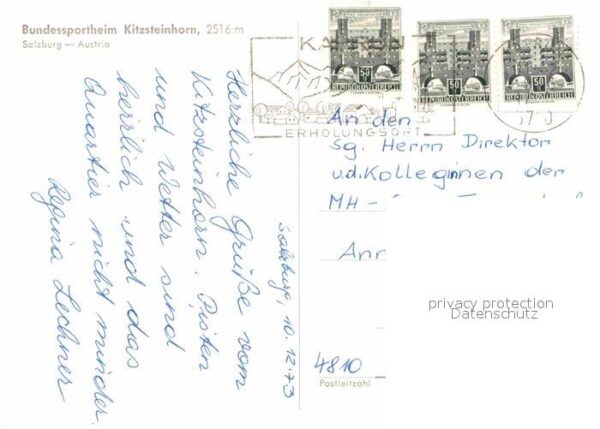 Bundessportheim Kitzsteinhorn, 2516 m
Salzburg — Austria
Salzburg, 10.12.73
Herzliche Grüße vom
Kitzsteinhorn. Pisten
und Wetter sind
herrlich und das
Quartier nicht minder.
Regina Lechner
KAPRUN
ERHOLUNGSORT
50
REPUBLIK ÖSTERREICH
50
REPUBLIK ÖSTERREICH
50
REPUBLIK ÖSTERREICH
An den
Sg. Herrn Direktor
u.d. Kolleginnen der
MH -
Ann
4810
Postleitzahl
privacy protection
Datenschutz